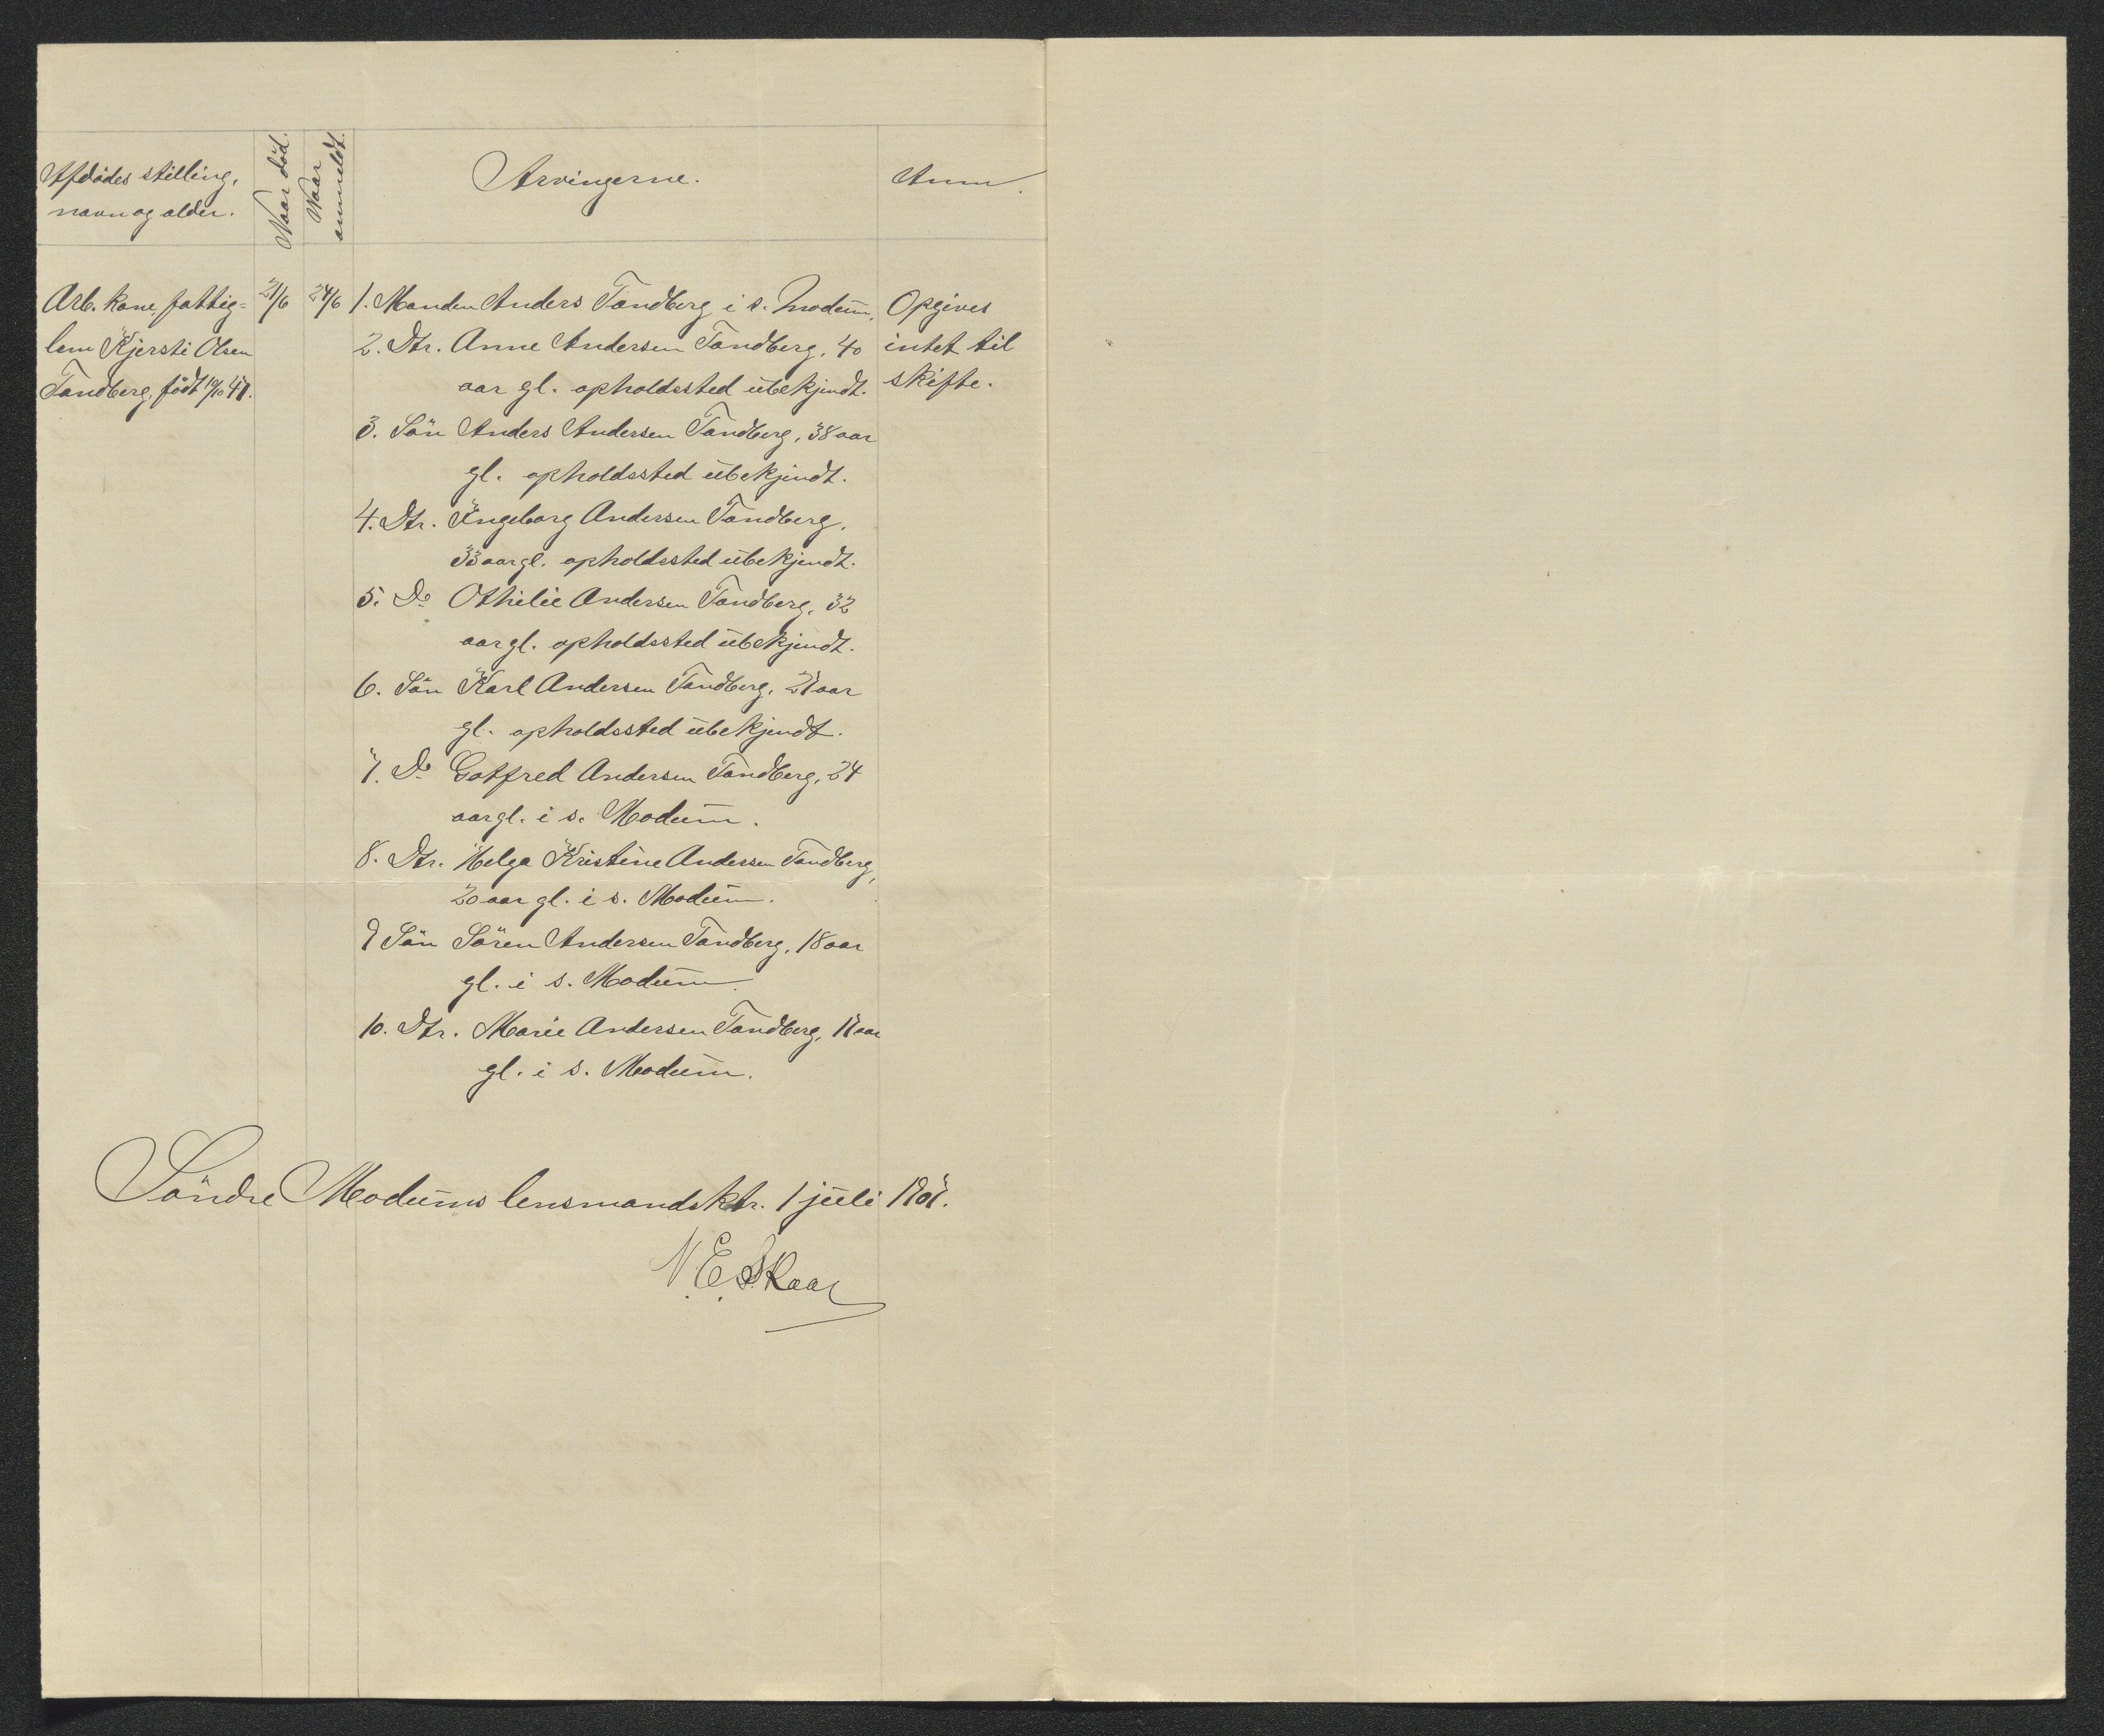 Afdödes stilling,
navn og alder.
Naar död.
Naar
anmeldt.
Arvingerne.
Anm.
Arb. kone, fattig-
lem Kjersti Olsen
Tandberg, födt 19/10 47.
21/6
24/6
1. Manden Anders Tandberg i s. Modum.
2. Dtr. Anne Andersen Tandberg, 40
aar gl. opholdssted ubekjendt.
3. Sön Anders Andersen Tandberg, 38 aar
gl. opholdssted ubekjendt.
4. Dtr. Ingeborg Andersen Tandberg,
33 aar gl. opholdssted ubekjendt.
5. Do Othilie Andersen Tandberg, 32
aar gl. opholdssted ubekjendt.
6. Sön Karl Andersen Tandberg, 27 aar
gl. opholdssted ubekjendt.
7. Do Gotfred Andersen Tandberg, 24
aar gl. i s. Modum.
8. Dtr. Helga Kristine Andersen Tandberg,
20 aar gl. i s. Modum.
9 Sön Sören Andersen Tandberg, 18 aar
gl. i s. Modum.
10. Dtr. Marie Andersen Tandberg, 17 aar
gl. i s. Modum.
Opgives
intet til
skifte.
Söndre Modums lensmandsktr. 1 juli 1907.
N. E. Skaar